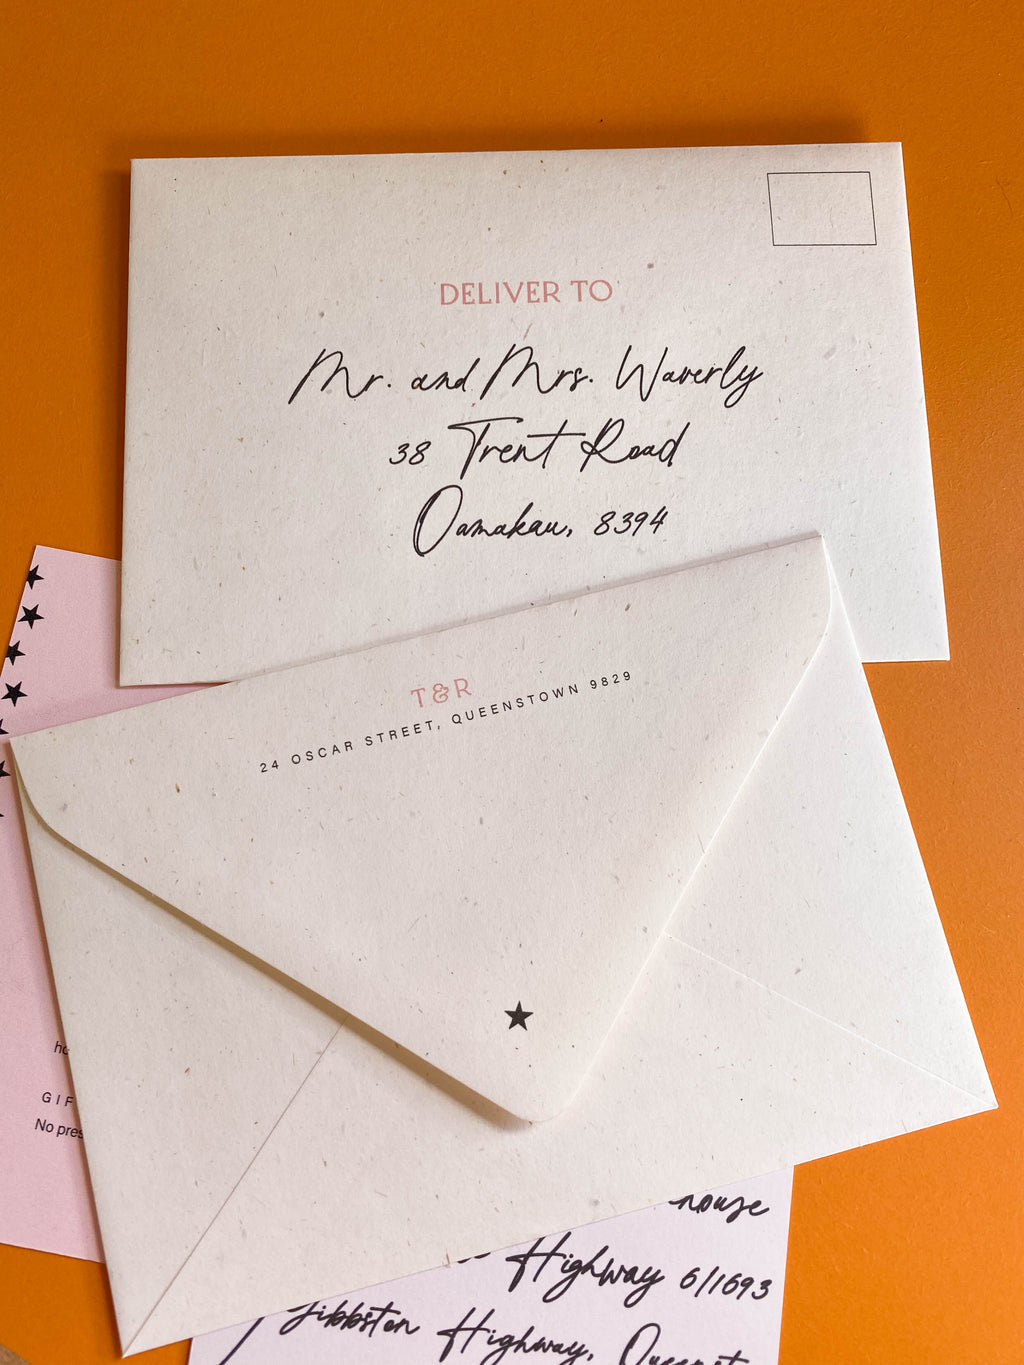 DELIVER TO
Mr. and Mrs. Waverly
38 Trent Road
Oamakau, 8394
T&R
24 OSCAR STREET, QUEENSTOWN 9829
GIF
No pres
house
Highway 6/1693
Gibbston Highway,